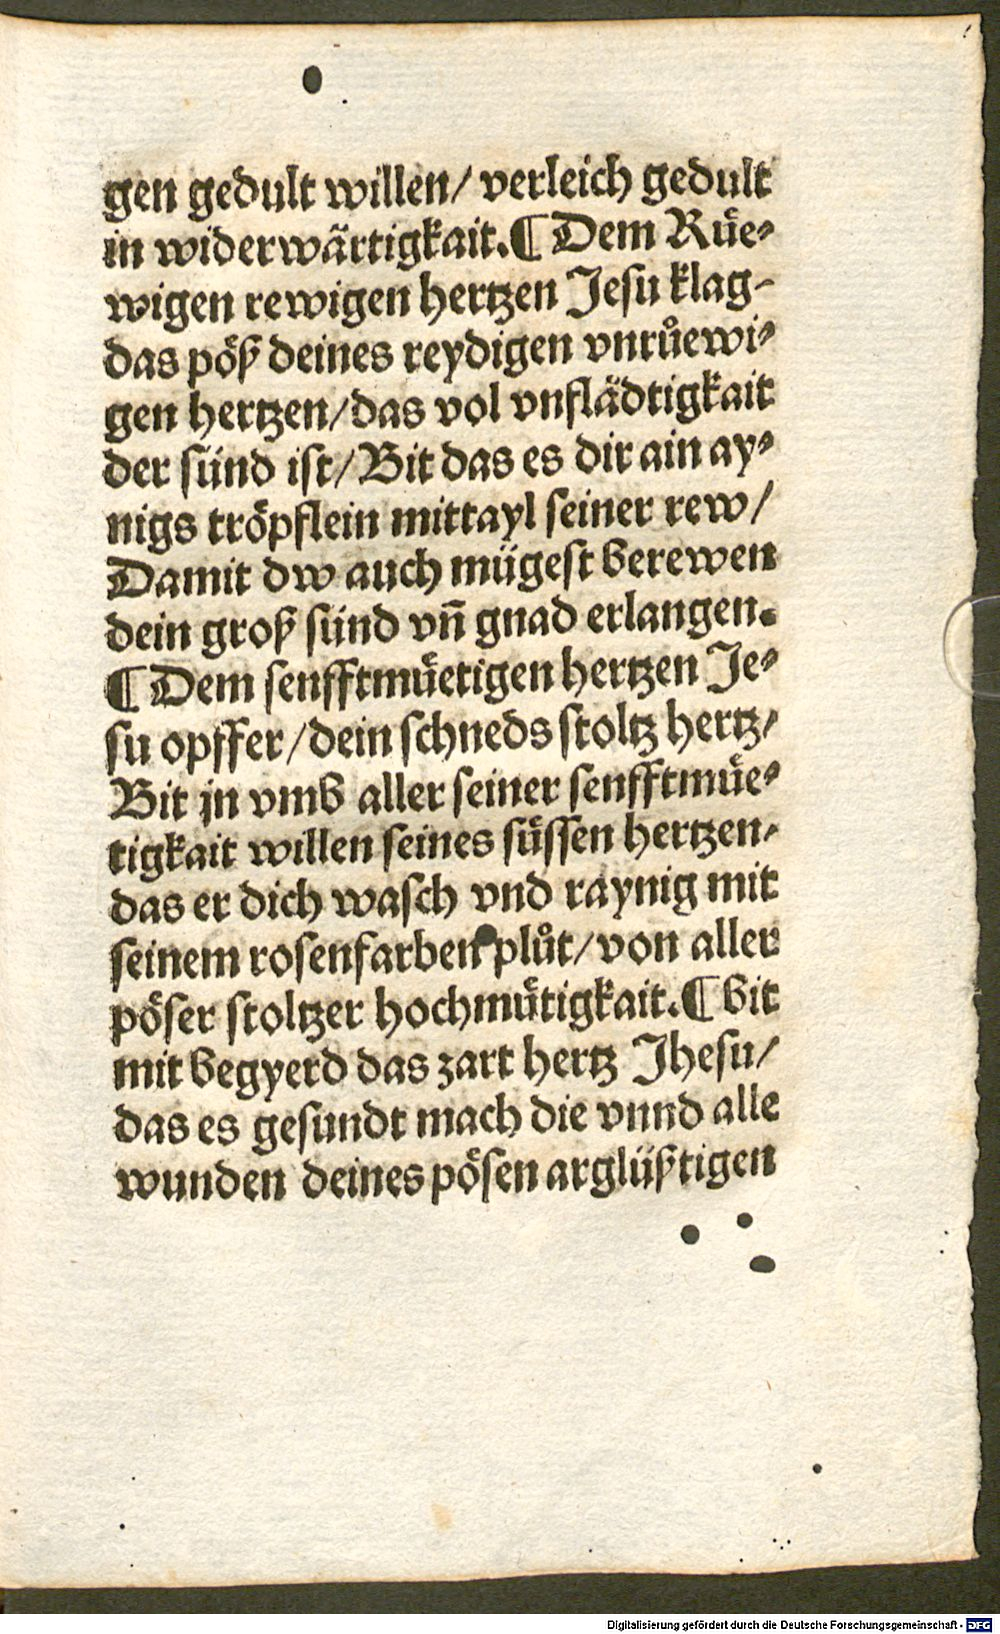 gen gedult willen/ verleich gedult
in widerwärtigkait. ¶ Dem Růe⸗
wigen rewigen hertzen Jesu klag⸗
das pöß deines reydigen vnrůewi⸗
gen hertzen/das vol vnflädtigkait
der sünd ist/Bit das es dir ain ay⸗
nigs tröpflein mittayl seiner rew/
Damit dw auch mügest berewen
dein groß sünd vñ gnad erlangen.
¶ Dem senfftmuͤetigen hertzen Je⸗
su opffer/dein schneds stoltz hertz/
Bit jn vmb aller seiner senfftmuͤe⸗
tigkait willen seines süssen hertzen⸗
das er dich wasch vnd raynig mit
seinem rosenfarben plůt/von aller
pöser stoltzer hochmuͤtigkait. ¶ bit
mit begyerd das zart hertz Jhesu/
das es gesundt mach die vnnd alle
wunden deines pösen arglüßtigen
Digitalisierung gefördert durch die Deutsche Forschungsgemeinschaft - DFG